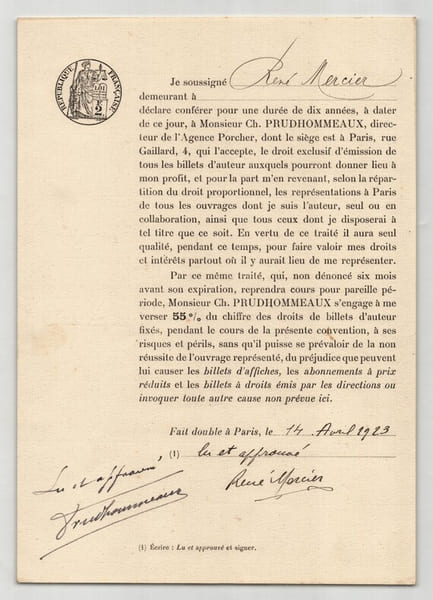 RÉPUBLIQUE FRANÇAISE
LOI
2
Je soussigné René Mercier
demeurant à
déclare conférer pour une durée de dix années, à dater
de ce jour, à Monsieur Ch. PRUDHOMMEAUX, direc-
teur de l'Agence Porcher, dont le siège est à Paris, rue
Gaillard, 4, qui l'accepte, le droit exclusif d'émission de
tous les billets d'auteur auxquels pourront donner lieu à
mon profit, et pour la part m'en revenant, selon la répar-
tition du droit proportionnel, les représentations à Paris
de tous les ouvrages dont je suis l'auteur, seul ou en
collaboration, ainsi que tous ceux dont je disposerai à
tel titre que ce soit. En vertu de ce traité il aura seul
qualité, pendant ce temps, pour faire valoir mes droits
et intérêts partout où il y aurait lieu de me représenter.
Par ce même traité, qui, non dénoncé six mois
avant son expiration, reprendra cours pour pareille pé-
riode, Monsieur Ch. PRUDHOMMEAUX s'engage à me
verser 55 % du chiffre des droits de billets d'auteur
fixés, pendant le cours de la présente convention, à ses
risques et périls, sans qu'il puisse se prévaloir de la non
réussite de l'ouvrage représenté, du préjudice que peuvent
lui causer les billets d'affiches, les abonnements à prix
réduits et les billets à droits émis par les directions ou
invoquer toute autre cause non prévue ici.
Fait double à Paris, le 14 Avril 1923
(1) lu et approuvé
René Mercier
Lu et approuvé
Prudhommeaux
(1) Écrire : Lu et approuvé et signer.